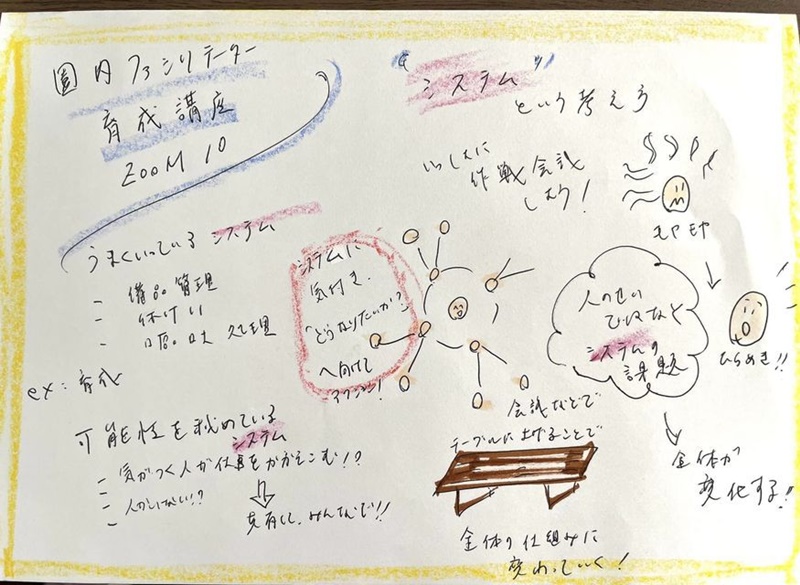 園内ファシリテーター
育成講座
ZOOM 10
"システム"
という考え方
いっしょに
作戦会議
しよう!
モヤモヤ
うまくいっているシステム
- 備品管理
- 休けい
- 処理
ex:育成
システムに
気付き、
「どうなりたいか?」
へ向けて
アクション!
人のせい
ではなく
システムの
課題
ひらめき!!
全体が
変化する!!
可能性を秘めている
システム
- 気がつく人が仕事をかかえこむ!?
- 人がいない!?
共有して、みんなで!!
会議などで
テーブルに上げることで
全体の仕組みに
変わっていく!